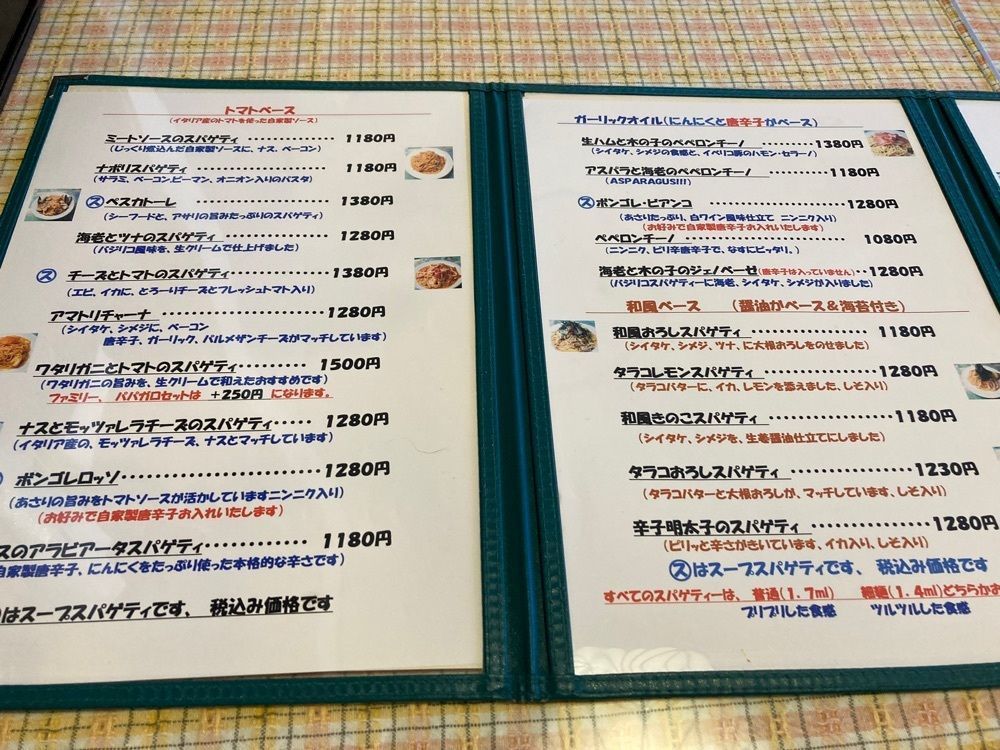 トマトベース
(イタリア産のトマトを使った自家製ソース)
ミートソースのスパゲティ ・・・・・・・・・・・・ 1180円
(じっくり煮込んだ自家製ソースに、ナス、ベーコン)
ナポリスパゲティ ・・・・・・・・・・・・・・・・ 1180円
(サラミ、ベーコン,ピーマン、オニオン入りのパスタ)
㋜ペスカトーレ ・・・・・・・・・・・・・・・・ 1380円
(シーフードと、アサリの旨みたっぷりのスパゲティ)
海老とツナのスパゲティ ・・・・・・・・・・・・ 1280円
(バジリコ風味を、生クリームで仕上げました)
㋜ チーズとトマトのスパゲティ・・・・・・・・・・・・ 1380円
(エビ、イカに、とろーりチーズとフレッシュトマト入り)
アマトリチャーナ ・・・・・・・・・・・・・・・・ 1280円
(シイタケ、シメジに、ベーコン
唐辛子、ガーリック、パルメザンチーズがマッチしています)
ワタリガニとトマトのスパゲティ・・・・・・・・・ 1500円
(ワタリガニの旨みを、生クリームで和えたおすすめです)
ファミリー、 パパガロセットは +250円 になります。
ナスとモッツァレラチーズのスパゲティ・・・・・ 1280円
(イタリア産の、モッツァレラチーズ、ナスとマッチしています)
ボンゴレロッソ・・・・・・・・・・・・・・・・・・ 1280円
(あさりの旨みをトマトソースが活かしていますニンニク入り)
(お好みで自家製唐辛子お入れいたします)
スのアラビアータスパゲティ・・・・・・・・・・・・ 1180円
自家製唐辛子、にんにくをたっぷり使った本格的な辛さです)
はスープスパゲティです、 税込み価格です
ガーリックオイル(にんにくと唐辛子がベース)
生ハムと木の子のペペロンチーノ ・・・・・・・・1380円
(シイタケ、シメジの食感と、イベリコ豚のハモン・セラーノ)
アスパラと海老のペペロンチーノ ・・・・・・・・・1180円
(ASPARAGUS!!!)
㋜ ボンゴレ・ビアンコ ・・・・・・・・・・・・・・・・1280円
(あさりたっぷり、白ワイン風味仕立て ニンニク入り)
(お好みで自家製唐辛子お入れいたします)
ペペロンチーノ ・・・・・・・・・・・・・・・・・・ 1080円
(ニンニク、ピリ辛唐辛子で、なすにピッタリ。)
海老と木の子のジェノベーゼ(唐辛子は入っていません)・・1280円
(バジリコスパゲティーに海老、シイタケ、シメジが入りました)
和風ベース (醤油がベース&海苔付き)
和風おろしスパゲティ ・・・・・・・・・・・・・・ 1180円
(シイタケ、シメジ、ツナ、に大根おろしをのせました)
タラコレモンスパゲティ ・・・・・・・・・・・・・・1280円
(タラコバターに、イカ、レモンを添えました、しそ入り)
和風きのこスパゲティ ・・・・・・・・・・・・・・1180円
(シイタケ、シメジを、生姜醤油仕立てにしました)
タラコおろしスパゲティ ・・・・・・・・・・・・・・1230円
(タラコバターと大根おろしが、マッチしています、しそ入り)
辛子明太子のスパゲティ ・・・・・・・・・・・・・・1280円
(ピリッと辛さがきいています、イカ入り、しそ入り)
㋜はスープスパゲティです、 税込み価格です
すべてのスパゲティーは、普通(1.7ml) 細麺(1.4ml)どちらかお
プリプリした食感 ツルツルした食感